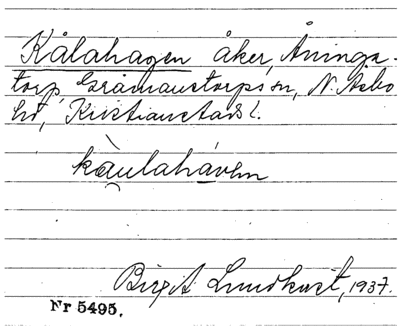 Kålahagen åker, Åninga-
torp, Gråmanstorps sn, N. Åsbo
hd, Kristianstads l.
kåulahaven
Birgit Lundkvist, 1937.
Nr 5495.